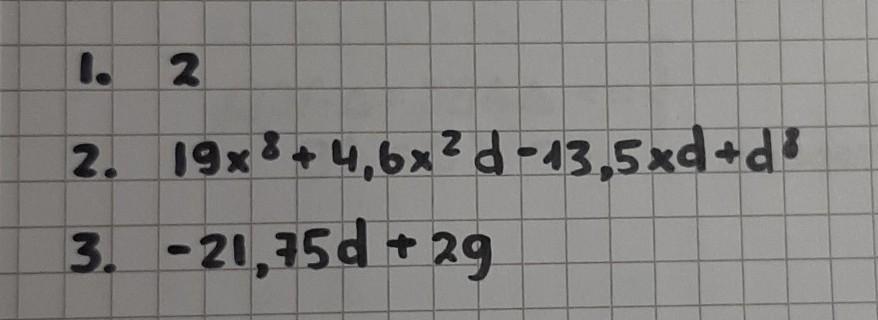 1. 2
2. 19x⁸ + 4,6x²d - 13,5xd + d⁸
3. -21,75d + 2g